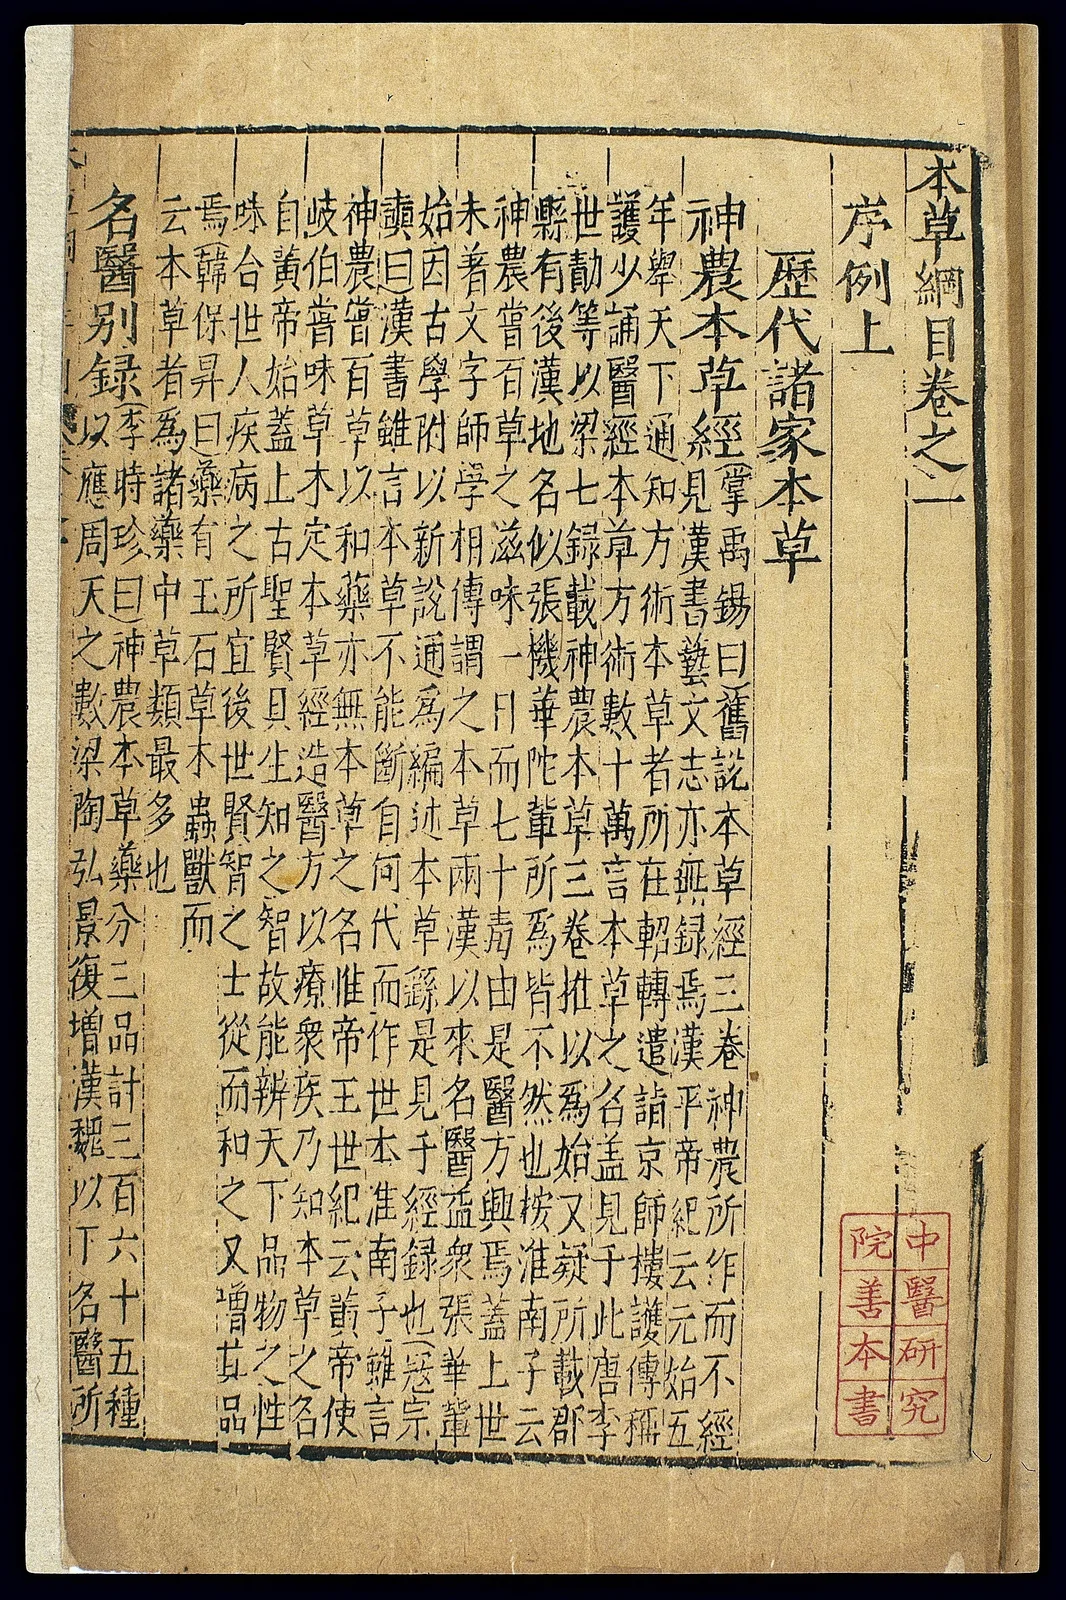 本草綱目卷之一
序例上
歷代諸家本草
神農本草經
掌禹錫曰舊說本草經三卷神農所作而不經
見漢書藝文志亦無錄焉漢平帝紀云元始五
年舉天下通知方術本草者所在軺轉遣詣京師樓護傳稱
護少誦醫經本草方術數十萬言本草之名蓋見于此唐李
世勣等以梁七錄載神農本草三卷推以為始又疑所載郡
縣有後漢地名似張機華陀輩所為皆不然也按淮南子云
神農嘗百草之滋味一日而七十毒由是醫方興焉蓋上世
未著文字師學相傳謂之本草兩漢以來名醫益衆張華輩
始因古學附以新說通為編述本草繇是見于經錄也寇宗
奭曰漢書雖言本草不能斷自何代而作世本淮南子雖言
神農嘗百草以和藥亦無本草之名惟帝王世紀云黃帝使
岐伯嘗味草木定本草經造醫方以療衆疾乃知本草之名
自黃帝始蓋上古聖賢具生知之智故能辨天下品物之性
味合世人疾病之所宜後世賢智之士從而和之又增其品
焉韓保昇曰藥有玉石草木蟲獸而
云本草者為諸藥中草類最多也
名醫別錄
李時珍曰神農本草藥分三品計三百六十五種
以應周天之數梁陶弘景復增漢魏以下名醫所
中醫研究
院善本書